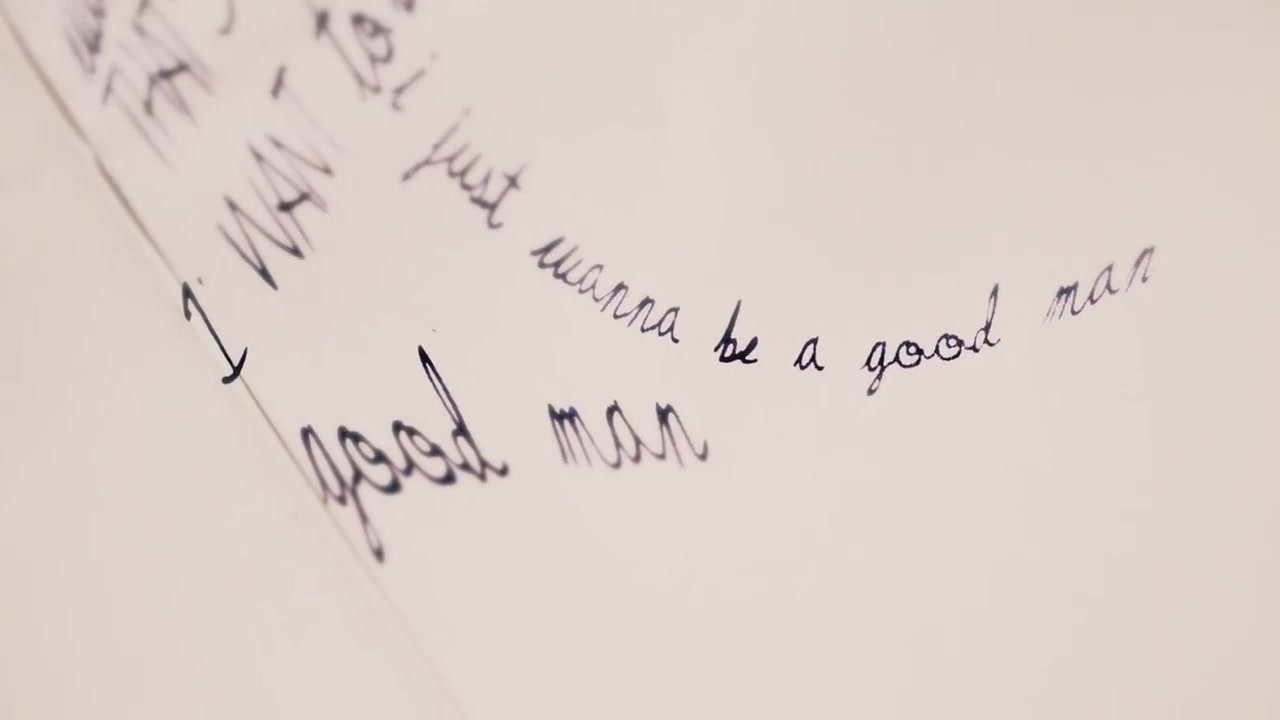 THAT'S
I WANT To
i just wanna be a good man
good man